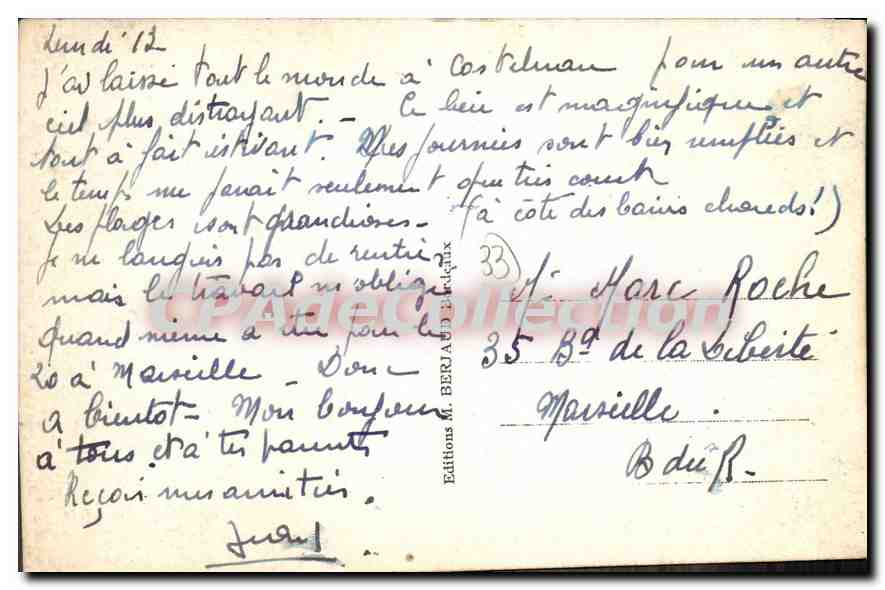 Lundi 12
J'ai laissé tout le monde à Castelnau pour un autre
ciel plus distrayant. - Ce lieu est magnifique et
tout à fait estivant. Mes journées sont bien remplies et
le temps me paraît seulement que très court
Les plages sont grandioses - (à côté des bains chauds!)
Je ne languis pas de rentrer
mais le travail m'oblige
quand même a être pour le
20 à Marseille - Donc
a bientot - Mon bonjour
à tous et à tes parents
Reçois mes amitiés.
33
Mr Marc Roche
35 Bd de la Liberté
Marseille.
B du R-
Editions M. BERJAUD, Bordeaux
CPADeCollection